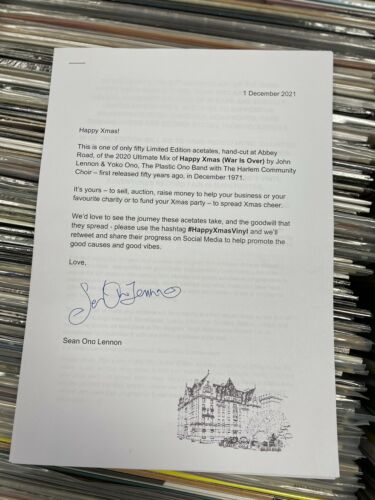 1 December 2021
Happy Xmas!
This is one of only fifty Limited Edition acetates, hand-cut at Abbey
Road, of the 2020 Ultimate Mix of Happy Xmas (War Is Over) by John
Lennon & Yoko Ono, The Plastic Ono Band with The Harlem Community
Choir – first released fifty years ago, in December 1971.
It's yours – to sell, auction, raise money to help your business or your
favourite charity or to fund your Xmas party – to spread Xmas cheer.
We'd love to see the journey these acetates take, and the goodwill that
they spread - please use the hashtag #HappyXmasVinyl and we'll
retweet and share their progress on Social Media to help promote the
good causes and good vibes.
Love,
Sean Ono Lennon
Sean Ono Lennon